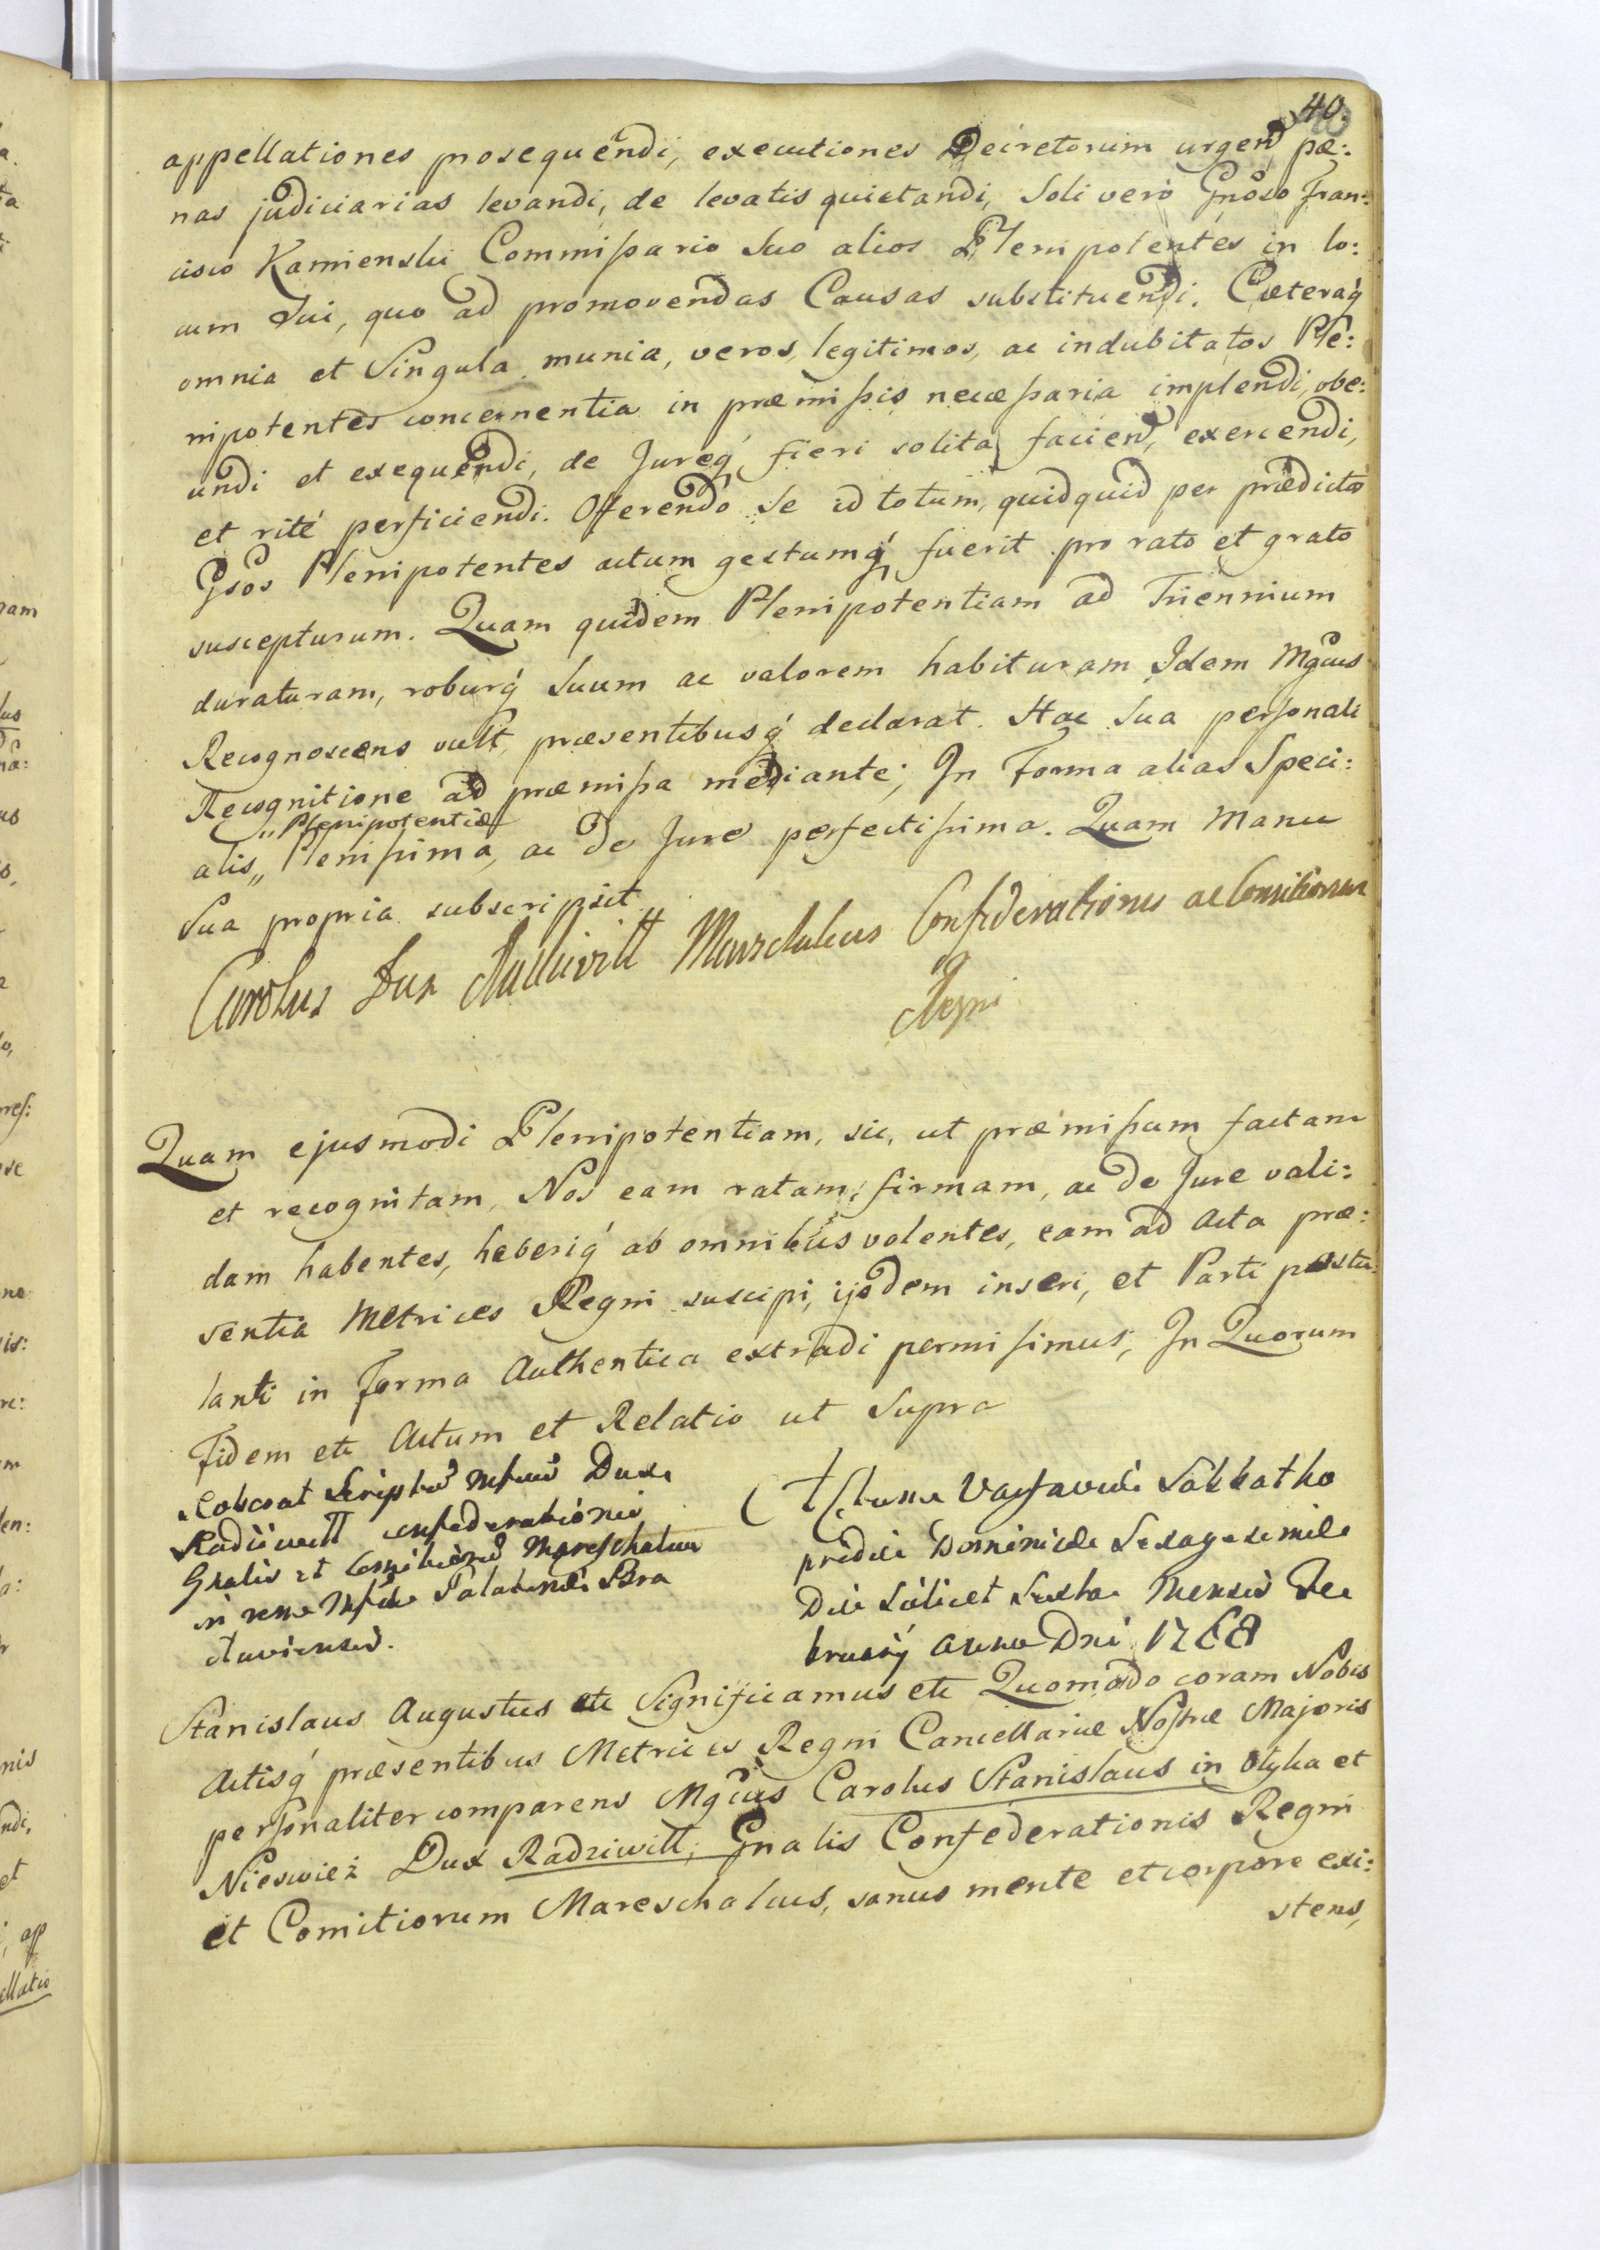 40.
appellationes prosequendi, executiones Decretorum urgend pæ:
nas judiciarias levandi, de levatis quietandi, Soli vero Gnoso Fran:
cisco Kamienski Commissario Suo alios Plenipotentes in lo:
cum Sui, quo ad promovendas Causas substituendi. Cæteraq́
omnia et Singula munia, veros, legitimos, ac indubitatos Ple:
nipotentes concernentia in præmissis necessaria implendi, obe:
undi et exequendi, de Jureq́ fieri solita faciend, exercendi,
et rité perficiendi. Offerendo Se id totum, quidquid per prædictos
Gsos Plenipotentes actum gestumq́ fuerit pro rato et grato
suscepturum. Quam quidem Plenipotentiam ad Triennium
duraturam, roburq́ Suum ac valorem habituram Idem Mgcus
Recognoscens vult, præsentibusq́ declarat. Hac Sua personali
Recognitione ad præmissa mediante; In Forma alias Speci:
„Plenipotentiæ
alis„ Plenissima, ac de Jure perfectissima. Quam Manu
Sua propria subscripsit
Carolus Dux Radziwill Marschalcus Confederationis ac Comitiorum
Regni
Quam ejusmodi Plenipotentiam, sic, ut præmissum factam
et recognitam, Nos eam ratam, firmam, ac de Jure vali:
dam habentes, haberiq́ ab omnibus volentes, eam ad Acta præ:
sentia Metrices Regni suscipi, ijsdem inseri, et Parti postu:
lanti in Forma Authentica extradi permisimus; In Quorum
Fidem etc Actum et Relatio ut Supra
Roborat Scriptum Duxe
Radziwill confederationis
Gnalis et Comitiorum Mareschalcus
in rem Palatini Bra
claviensis.
Actum Varsaviæ Sabbatho
pridie Dominicæ Sexagesimæ
Die Scilicet Sexta Mensis Fe
bruarij Anno Dni 1768
Stanislaus Augustus etc Significamus etc Quomodo coram Nobis
Actisq́ præsentibus Metrices Regni Cancellariæ Nostræ Majoris
personaliter comparens Mgcus Carolus Stanislaus in Olyka et
Nieswież Dux Radziwill, Gnalis Confederationis Regni
et Comitiorum Mareschalcus, sanus mente et corpore exi:
stens,